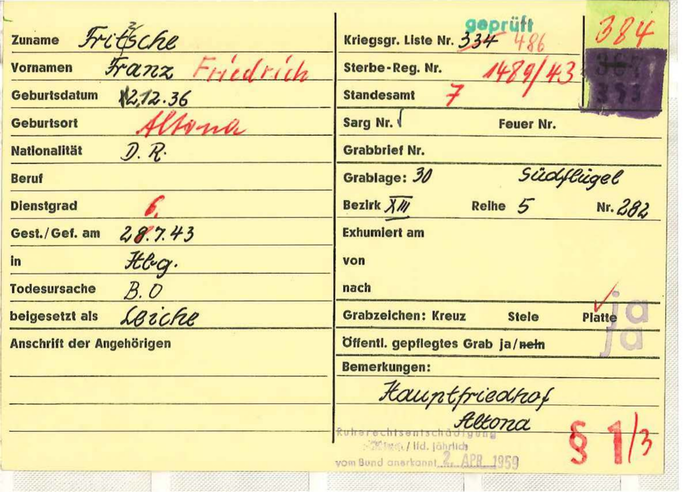 Zuname Fritzsche
Vornamen Franz Friedrich
Geburtsdatum 12.12.36
Geburtsort Altona
Nationalität D. R.
Beruf
Dienstgrad
Gest./Gef. am 28.7.43
in Hbg.
Todesursache B. O
beigesetzt als Leiche
Anschrift der Angehörigen
geprüft
384
Kriegsgr. Liste Nr. 334 486
Sterbe-Reg. Nr. 1489/43
Standesamt 7
Sarg Nr. Feuer Nr.
Grabbrief Nr.
Grablage: 30 Südflügel
Bezirk XIII Reihe 5 Nr. 282
Exhumiert am
von
nach
Grabzeichen: Kreuz Stele Platte ja
Öffentl. gepflegtes Grab ja/nein ja
Bemerkungen:
Hauptfriedhof
Altona
Ruherechtsentschädigung
/ lfd. jährlich
vom Bund anerkannt 2. APR. 1959
§ 1/3